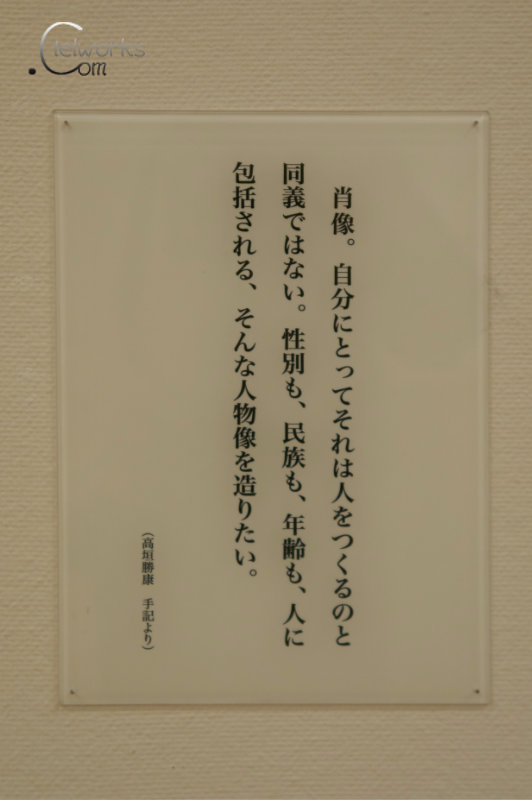 Cielworks
.Com
肖像。自分にとってそれは人をつくるのと
同義ではない。性別も、民族も、年齢も、人に
包括される、そんな人物像を造りたい。
(高垣勝康 手記より)